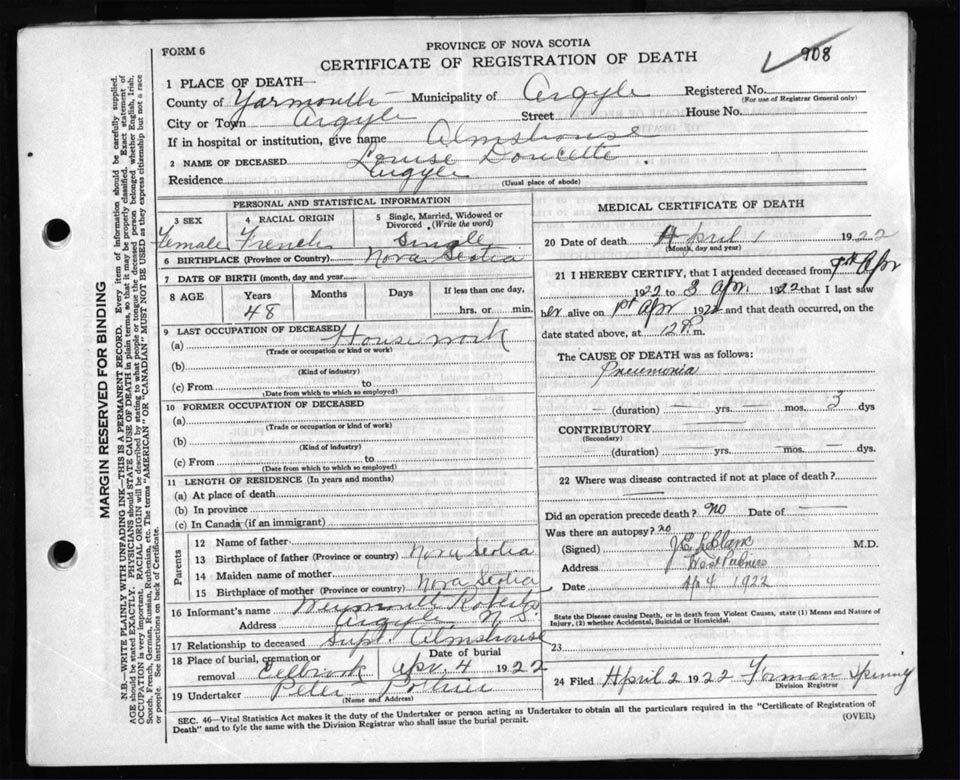 FORM 6
PROVINCE OF NOVA SCOTIA
CERTIFICATE OF REGISTRATION OF DEATH
908
1 PLACE OF DEATH—
County of Yarmouth Municipality of Argyle Registered No.
(For use of Registrar General only)
City or Town Argyle Street House No.
If in hospital or institution, give name Almshouse
2 NAME OF DECEASED Louise Doucette
Residence Argyle
(Usual place of abode)
PERSONAL AND STATISTICAL INFORMATION
3 SEX 4 RACIAL ORIGIN 5 Single, Married, Widowed or Divorced. (Write the word)
Female French Single
6 BIRTHPLACE (Province or Country) Nova Scotia
7 DATE OF BIRTH (month, day and year)
8 AGE Years Months Days If less than one day,
48 hrs. or min.
9 LAST OCCUPATION OF DECEASED
(a) Housework
(Trade or occupation or kind or work)
(b)
(Kind of industry)
(c) From to
(Date from which to which so employed)
10 FORMER OCCUPATION OF DECEASED
(a)
(Trade or occupation or kind of work)
(b)
(Kind of industry)
(c) From to
(Date from which to which so employed)
11 LENGTH OF RESIDENCE (In years and months)
(a) At place of death
(b) In province
(c) In Canada (if an immigrant)
Parents
12 Name of father
13 Birthplace of father (Province or country) Nova Scotia
14 Maiden name of mother
15 Birthplace of mother (Province or country) Nova Scotia
16 Informant's name Weymouth Roberts
Address Argyle N.S.
17 Relationship to deceased Supt Almshouse
18 Place of burial, cremation or removal Eelbrook Date of burial Apr. 4 1922
19 Undertaker Peter Pothier
(Name and Address)
MEDICAL CERTIFICATE OF DEATH
20 Date of death April 1 1922
(Month, day and year)
21 I HEREBY CERTIFY, that I attended deceased from Apr
1922 to 3 Apr. 1922 that I last saw
her alive on 1st Apr 1922 and that death occurred, on the
date stated above, at 12 P. m.
The CAUSE OF DEATH was as follows:
Pneumonia
(duration) yrs. mos. 3 dys
CONTRIBUTORY
(Secondary)
(duration) yrs. mos. dys.
22 Where was disease contracted if not at place of death?
Did an operation precede death? No Date of
Was there an autopsy? no
(Signed) J.E. LeBlanc M.D.
Address West Pubnico
Date Ap 4 1922
State the Disease causing Death, or in death from Violent Causes, state (1) Means and Nature of
Injury, (2) whether Accidental, Suicidal or Homicidal.
23
24 Filed April 2 1922 Forman Spinney
Division Registrar
SEC. 46—Vital Statistics Act makes it the duty of the Undertaker or person acting as Undertaker to obtain all the particulars required in the "Certificate of Registration of
Death" and to fyle the same with the Division Registrar who shall issue the burial permit.
(OVER)
MARGIN RESERVED FOR BINDING
N.B.—WRITE PLAINLY WITH UNFADING INK—THIS IS A PERMANENT RECORD. Every item of information should be carefully supplied.
AGE should be stated EXACTLY. PHYSICIANS should STATE CAUSE OF DEATH in plain terms, so that it may be properly classified. Exact statement of
OCCUPATION is very important. RACIAL ORIGIN will be described by stating to what people or tongue the deceased person belonged whether English, Irish,
Scotch, French, German, Russian, Ruthenian, etc. The terms "AMERICAN" OR "CANADIAN" MUST NOT BE USED as they express citizenship but not a race
or people. See instructions on back of Certificate.